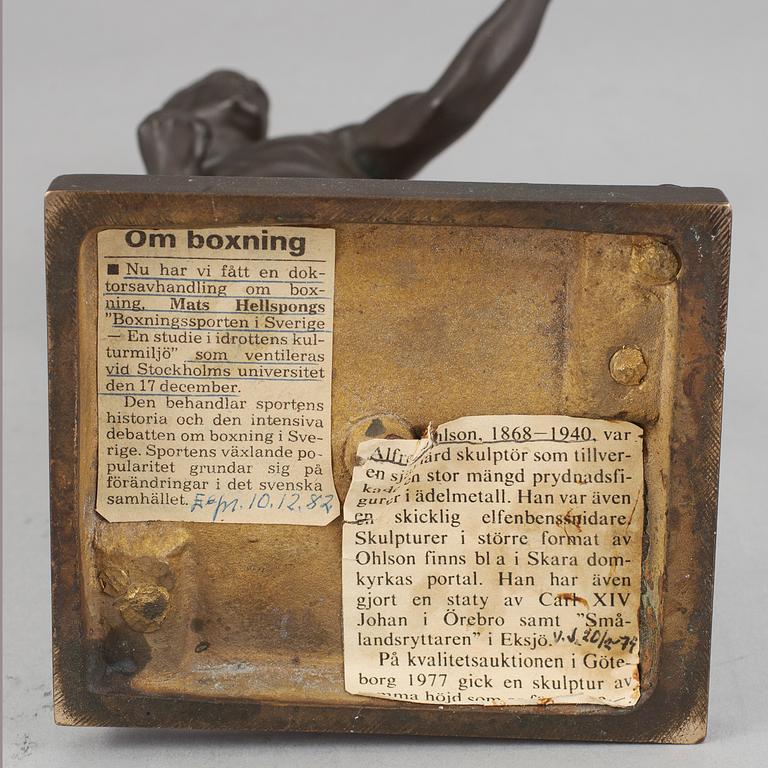 Om boxning
■ Nu har vi fått en dok-
torsavhandling om box-
ning, Mats Hellspongs
"Boxningssporten i Sverige
— En studie i idrottens kul-
turmiljö" som ventileras
vid Stockholms universitet
den 17 december.
Den behandlar sportens
historia och den intensiva
debatten om boxning i Sve-
rige. Sportens växlande po-
pularitet grundar sig på
förändringar i det svenska
samhället. 10.12.82
hlson, 1868—1940, var
Alfre ärd skulptör som tillver-
en sjä stor mängd prydnadsfi-
kad
gurer i ädelmetall. Han var även
en skicklig elfenbenssnidare.
Skulpturer i större format av
Ohlson finns bl a i Skara dom-
kyrkas portal. Han har även
gjort en staty av Carl XIV
Johan i Örebro samt "Små-
landsryttaren" i Eksjö.
På kvalitetsauktionen i Göte-
borg 1977 gick en skulptur av
mma höjd som